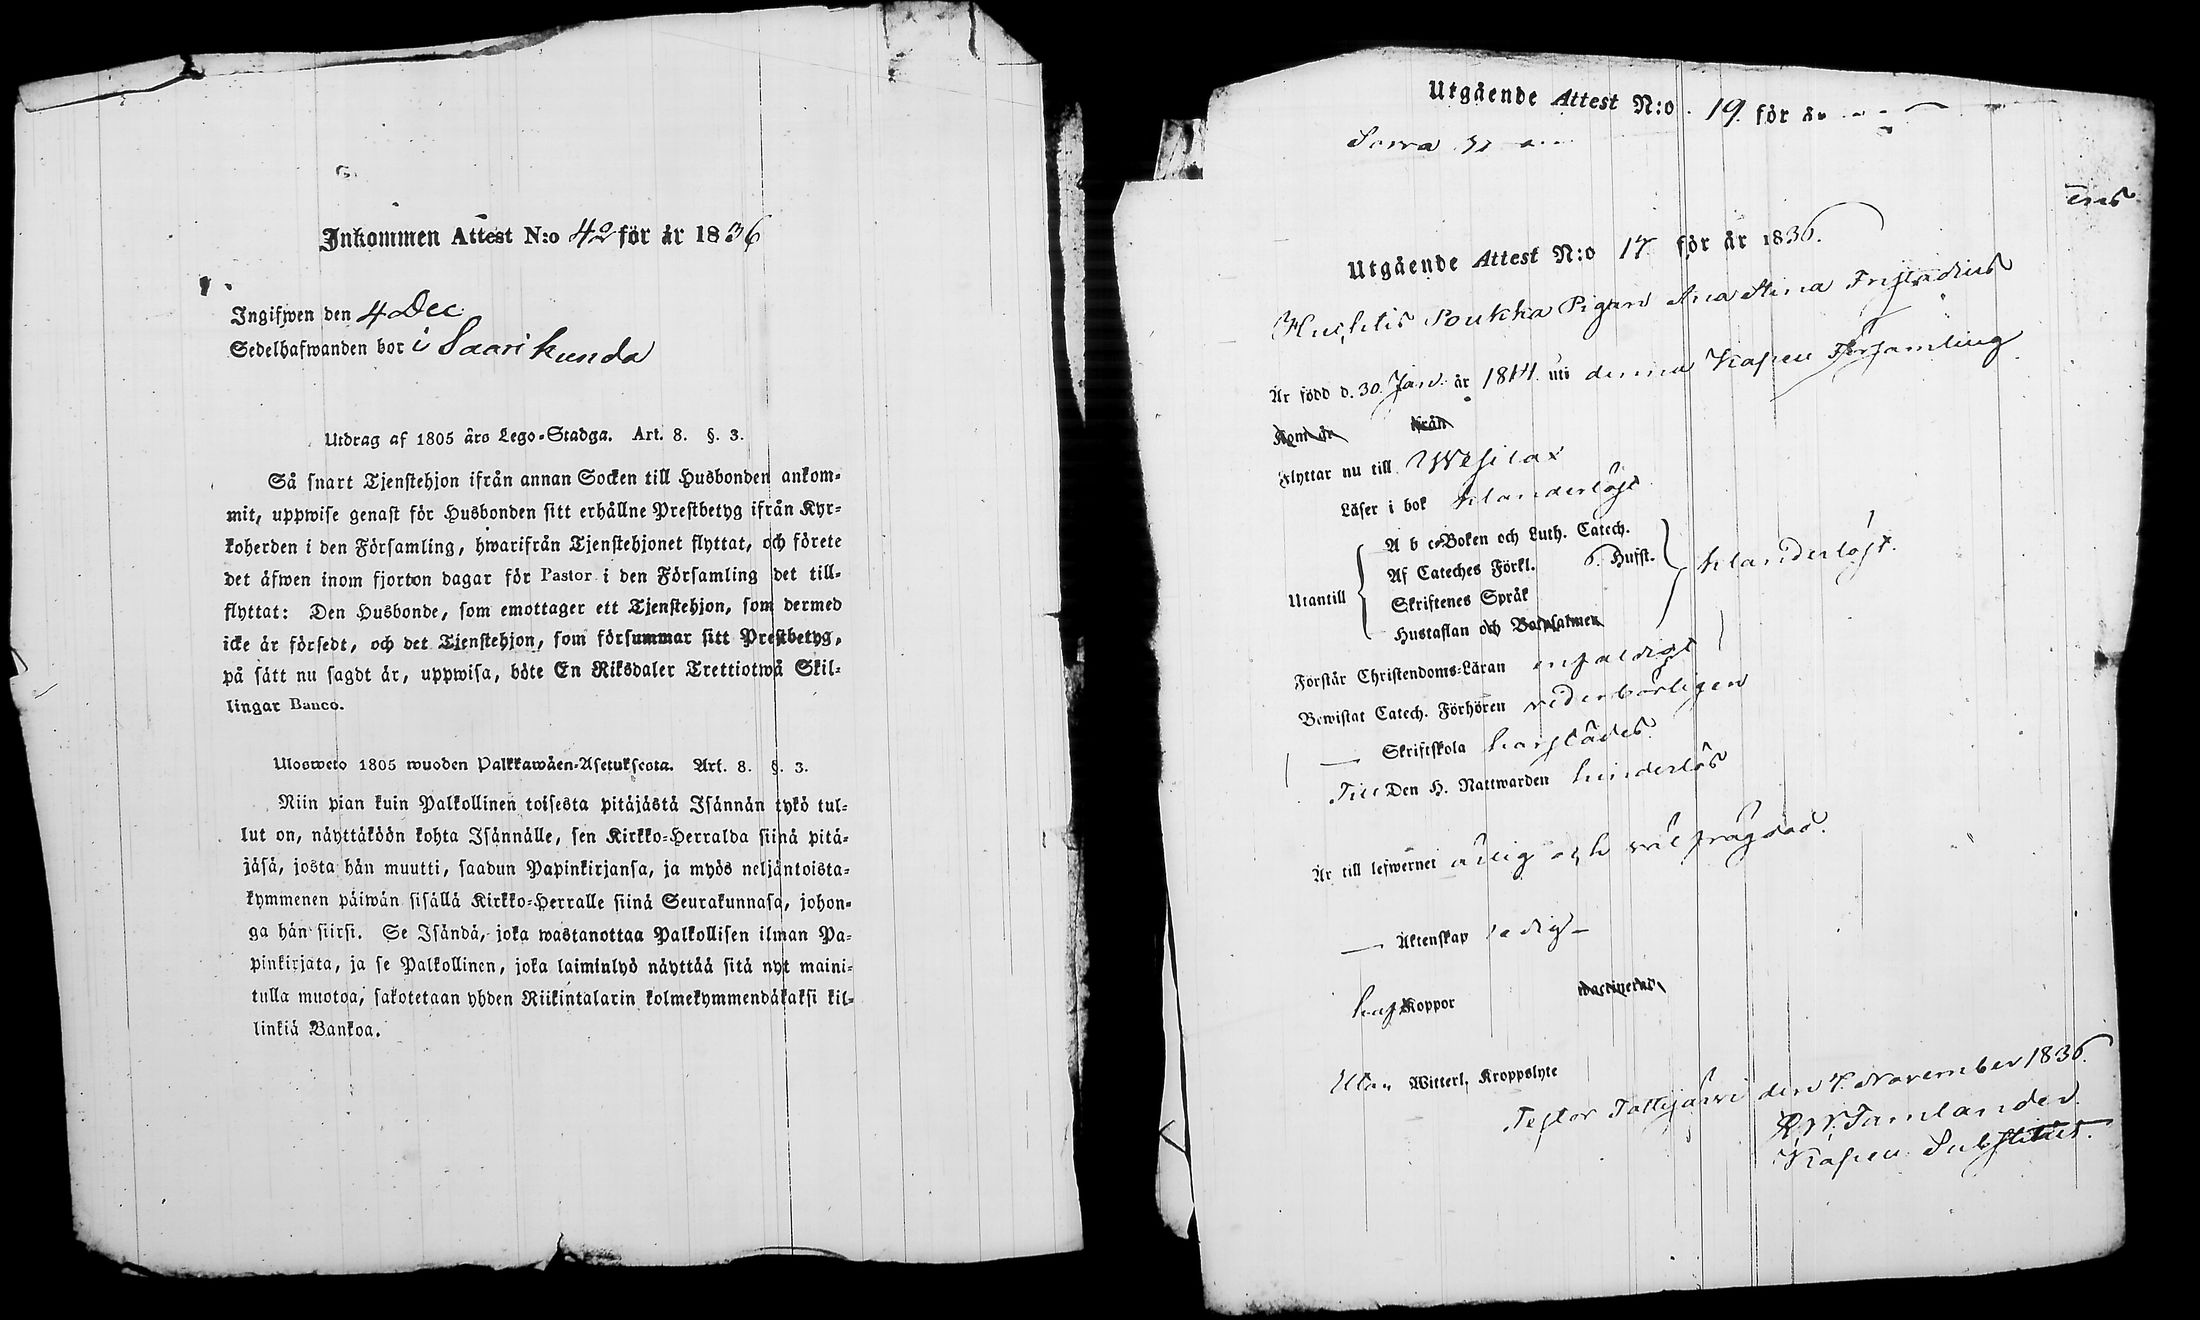 Inkommen Attest N:o 42 för år 1836
Ingifwen den 4 Dec
Sedelhafwanden bor i Saarikunda
Utdrag af 1805 års Lego-Stadga. Art. 8. §. 3.
Så snart Tjenstehjon ifrån annan Socken till Husbonden ankom-
mit, uppwise genast för Husbonden sitt erhållne Prestbetyg ifrån Kyr-
koherden i den Församling, hwarifrån Tjenstehjonet flyttat, och förete
det äfwen inom fjorton dagar för Pastor i den Församling det till-
flyttat: Den Husbonde, som emottager ett Tjenstehjon, som dermed
icke är försedt, och det Tjenstehjon, som försummar sitt Prestbetyg,
på sätt nu sagdt är, uppwisa, böte En Riksdaler Trettiotwå Skil-
lingar Banco.
Ulosweto 1805 wuoden Palkkawäen-Asetuksesta. Art. 8. §. 3.
Niin pian kuin Palkollinen toisesta pitäjästä Isännän tykö tul-
lut on, näyttäköön kohta Isännälle, sen Kirkko-Herralda siinä pitä-
jäsä, josta hän muutti, saadun Papinkirjansa, ja myös neljäntoista-
kymmenen päiwän sisällä Kirkko-Herralle siinä Seurakunnasa, johon-
ga hän siirsi. Se Isändä, joka wastanottaa Palkollisen ilman Pa-
pinkirjata, ja se Palkollinen, joka laiminlyö näyttää sitä nyt maini-
tulla muotoa, sakotetaan yhden Riikintalarin kolmekymmendäkaksi kil-
linkiä Bankoa.
Utgående Attest N:o 19 för år
Utgående Attest N:o 17 för år 1836.
Soukka Pigan Ana Stina
Är född d. 30. Jan. år 1814 uti denna Kapell Församling
Kom år från
Flyttar nu till Wesilax
Läser i bok klanderlöst
A b c-Boken och Luth. Catech.
Af Cateches Förkl. 6. Hufst.
Utantill Skriftenes Språk klanderlöst.
Hustaflan och Botpsalmen
Förstår Christendoms-Läran enfaldigt
Bewistat Catech. Förhören vederbörligen
— Skriftskola härstädes
Till Den H. Nattwarden hinderlös
Är till lefwernet ärlig och väl frägdad.
— Äktenskap ledig —
haft Koppor vaccinerad
Utan Witterl. Kroppslyte
Testor Tottijärvi den 4 November 1836.
Kapell Substitut.